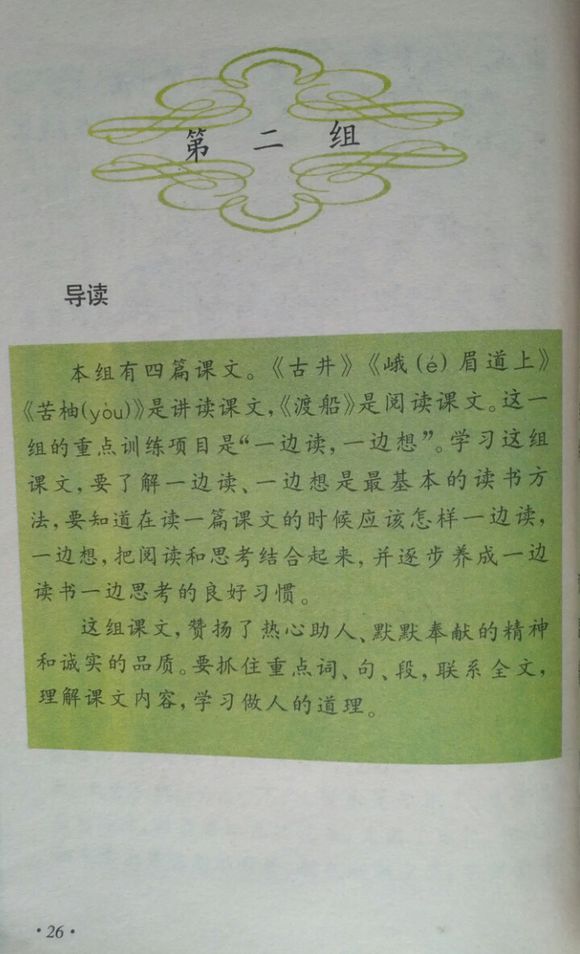 第二组
导读
本组有四篇课文。《古井》《峨(é)眉道上》
《苦柚(yòu)》是讲读课文,《渡船》是阅读课文。这一
组的重点训练项目是“一边读,一边想”。学习这组
课文,要了解一边读、一边想是最基本的读书方
法,要知道在读一篇课文的时候应该怎样一边读,
一边想,把阅读和思考结合起来,并逐步养成一边
读书一边思考的良好习惯。
这组课文,赞扬了热心助人、默默奉献的精神
和诚实的品质。要抓住重点词、句、段,联系全文,
理解课文内容,学习做人的道理。
·26·